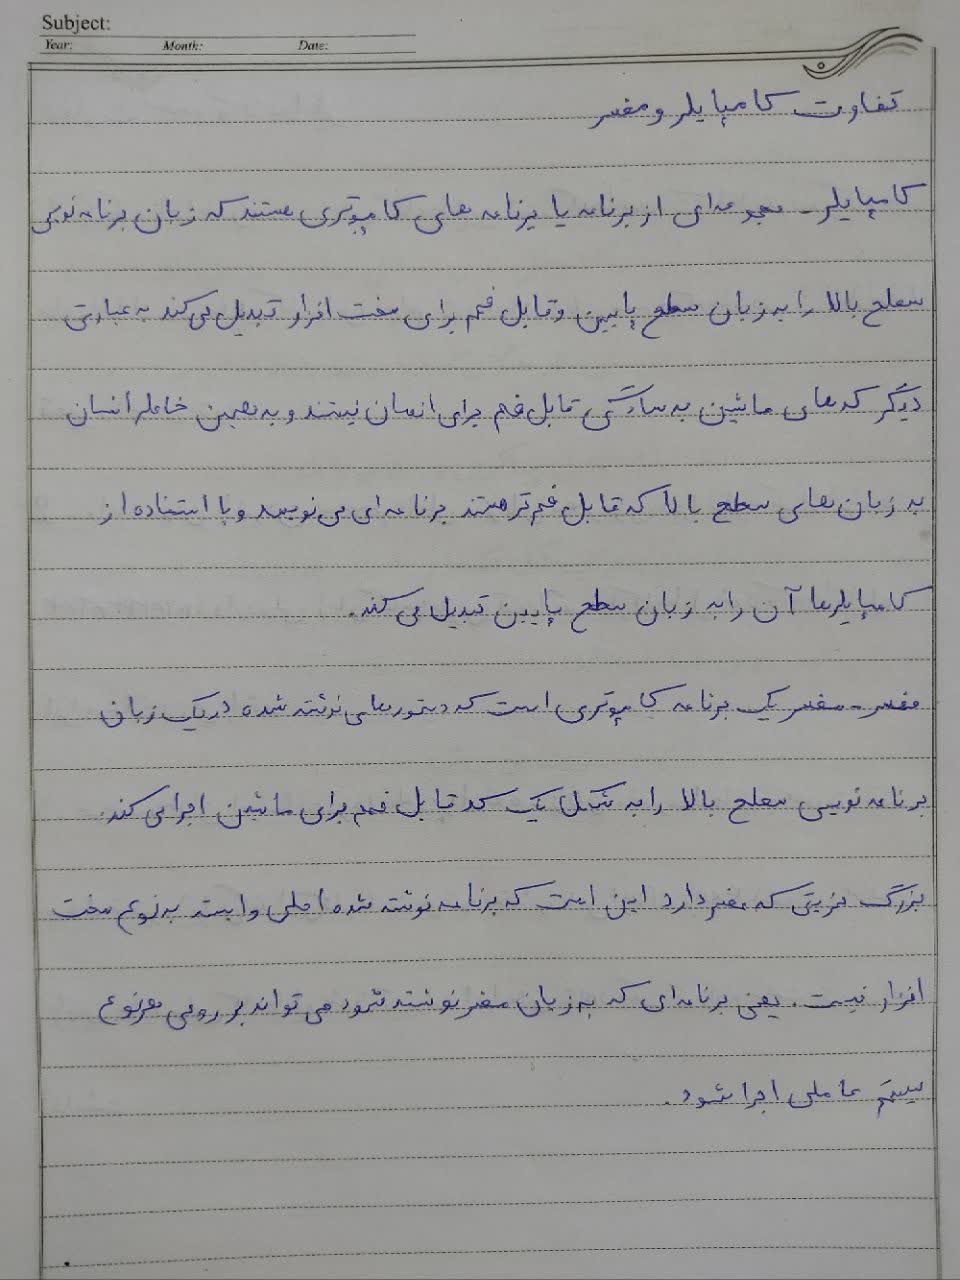 Subject:
Year: Month: Date:
تفاوت کامپایلر و مفسر
کامپایلر - مجموعه‌ای از برنامه یا برنامه های کامپوتری هستند که زبان برنامه نویسی
سطح بالا را به زبان سطح پایین و قابل فهم برای سخت افزار تبدیل می کند به عبارتی
دیگر کدهای ماشین به سادگی قابل فهم برای انسان نیستند و به همین خاطر انسان
به زبان های سطح بالا که قابل فهم تر هستند برنامه ای می نویسد و با استفاده از
کامپایلرها آن را به زبان سطح پایین تبدیل می کند.
مفسر - مفسر یک برنامه کامپوتری است که دستورهای نوشته شده در یک زبان
برنامه نویسی سطح بالا را به شکل یک کد قابل فهم برای ماشین اجرا می کند.
بزرگ مزیتی که مفسر دارد این است که برنامه نوشته شده اصلی وابسته به نوع سخت
افزار نیست. یعنی برنامه‌ای که به زبان مفسر نوشته شود می تواند بر روی هر نوع
سیستم عاملی اجرا شود.